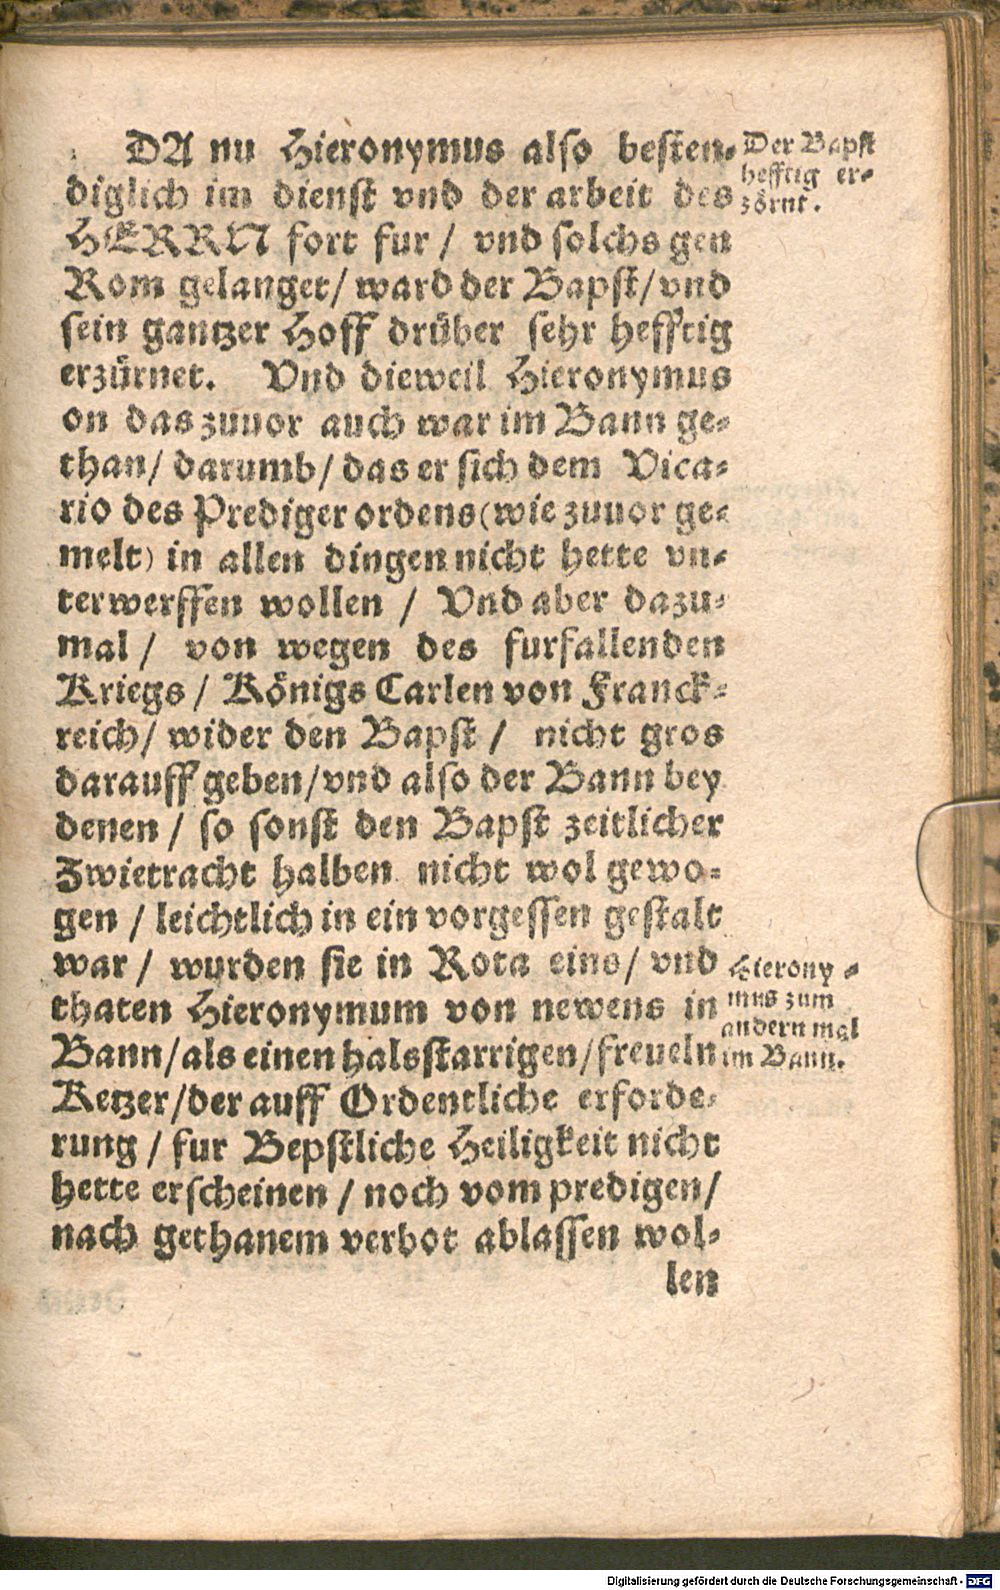 DA nu Hieronymus also besten-
diglich im dienst vnd der arbeit des
HERRN fort fur / vnd solchs gen
Rom gelanget / ward der Bapst / vnd
sein gantzer Hoff drüber sehr hefftig
erzürnet. Vnd dieweil Hieronymus
on das zuuor auch war im Bann ge-
than / darumb / das er sich dem Vica-
rio des Prediger ordens (wie zuuor ge-
melt) in allen dingen nicht hette vn-
terwerffen wollen / Vnd aber dazu-
mal / von wegen des furfallenden
Kriegs / Königs Carlen von Franck-
reich / wider den Bapst / nicht gros
darauff geben / vnd also der Bann bey
denen / so sonst den Bapst zeitlicher
Zwietracht halben nicht wol gewo-
gen / leichtlich in ein vorgessen gestalt
war / wurden sie in Rota eins / vnd
thaten Hieronymum von newens in
Bann / als einen halsstarrigen / freueln
Ketzer / der auff Ordentliche erforde-
rung / fur Bepstliche Heiligkeit nicht
hette erscheinen / noch vom predigen /
nach gethanem verbot ablassen wol-
len
Der Bapst
hefftig er-
zörnt.
Hierony-
mus zum
andern mal
im Bann.
Digitalisierung gefördert durch die Deutsche Forschungsgemeinschaft - DFG